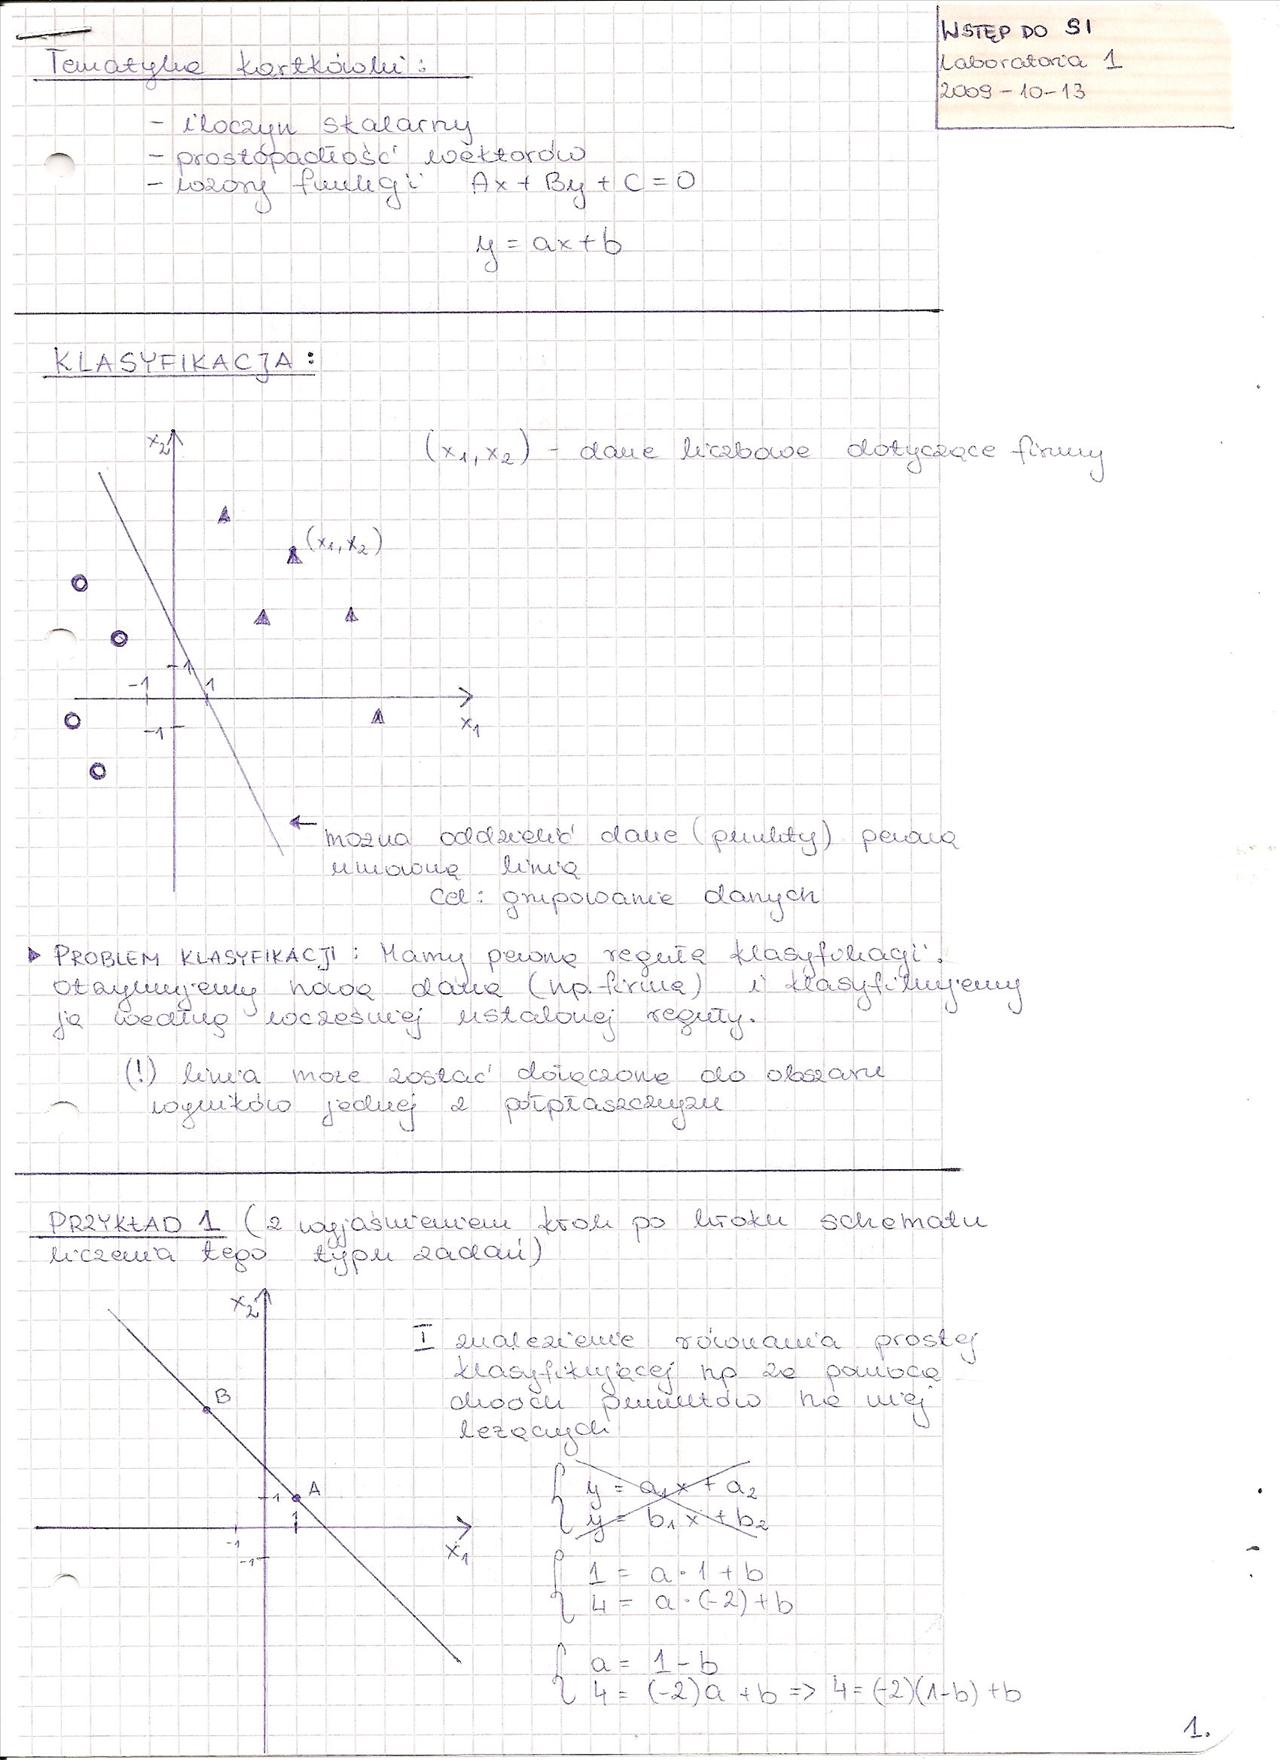 WSTĘP DO SI
Laboratoria 1
2009-10-13
Tematyka kartkówki:
- iloczyn skalarny
- prostopadłość wektorów
- wzory funkcji Ax + By + C = 0
y = ax + b
KLASYFIKACJA:
(x₁, x₂) - dane liczbowe dotyczące firmy
x₂
(x₁, x₂)
1
-1 1
-1
x₁
← można oddzielić dane (punkty) pewną
umowną linią
Cel: grupowanie danych
▶ PROBLEM KLASYFIKACJI: Mamy pewną regułę klasyfikacji,
otrzymujemy nową daną (np. firmę) i klasyfikujemy
ją według wcześniej ustalonej reguły.
(!) linia może zostać dołączona do obszaru
wyników jednej z półpłaszczyzn
PRZYKŁAD 1 (z wyjaśnieniem krok po kroku schematu
liczenia tego typu zadań)
x₂
B
A
1
1
-1
-1
x₁
I znalezienie równania prostej
klasyfikującej np za pomocą
dwóch punktów na niej
leżących
{ y = a₁x + a₂
y = b₁x + b₂
{ 1 = a·1 + b
4 = a·(-2) + b
{ a = 1 - b
4 = (-2)a + b => 4 = (-2)(1-b) + b
1.